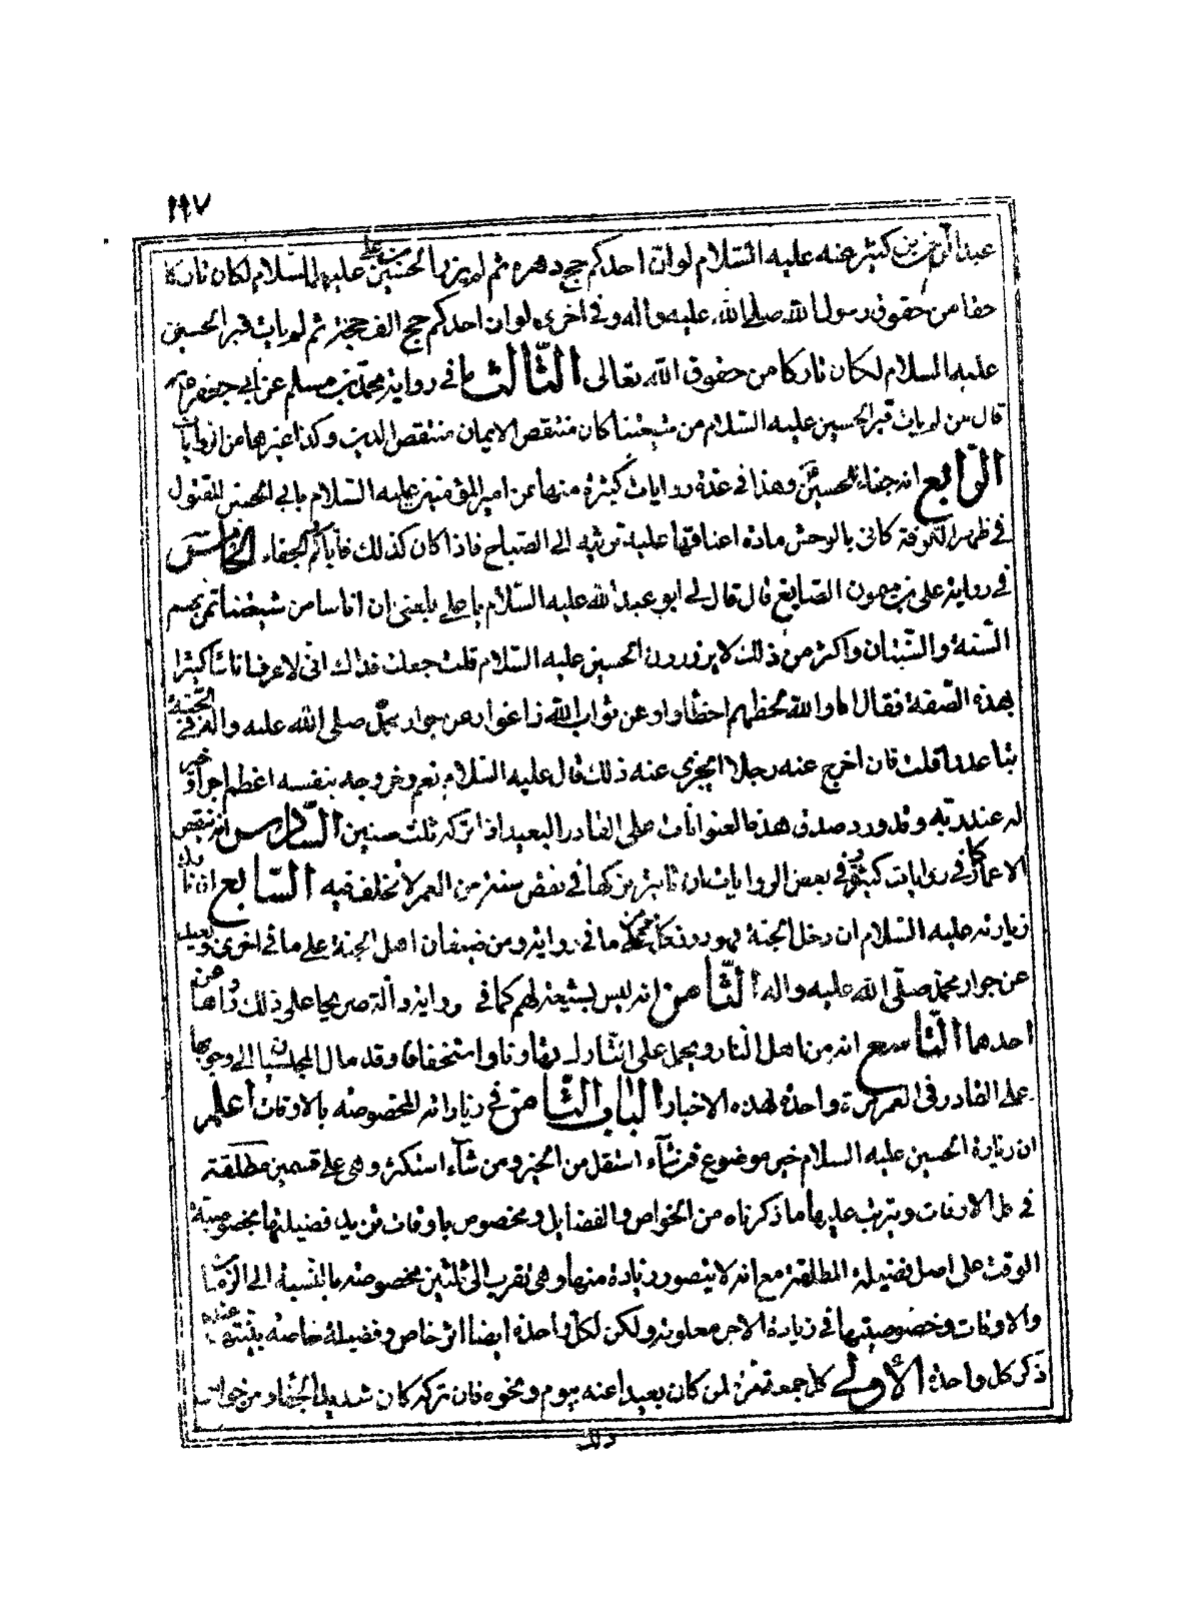 ١٩٧
عبد الرحمن بن كثير عنه عليه السلام لو ان احدكم حج دهره ثم لم يزر الحسين بن علي عليهما السلام لكان تاركا
حقا من حقوق رسول الله صلى الله عليه واله وفي اخرى لو ان احدكم حج الف حجة ثم لم يات قبر الحسين
عليه السلام لكان تاركا من حقوق الله تعالى الثالث ما في رواية محمد بن مسلم عن ابي جعفر
قال من لم يات قبر الحسين عليه السلام من شيعتنا كان منتقص الايمان منتقص الدين وكذا غيرها من الروايات
الرابع انه جفاء للحسين وهذا في عدة روايات كثيرة منها عن امير المؤمنين عليه السلام بابي الحسين المقتول
في ظهر الكوفة كاني بالوحش مادة اعناقها عليه ترثيه الى الصباح فاذا كان كذلك فاياكم والجفاء الخامس
في رواية علي بن ميمون الصايغ قال قال لي ابو عبد الله عليه السلام يا علي بلغني ان اناسا من شيعتنا تمر بهم
السنة والسنتان واكثر من ذلك لا يزورون الحسين عليه السلام قلت جعلت فداك اني لاعرف اناسا كثيرا
بهذه الصفة فقال اما والله لحظهم اخطاوا وعن ثواب الله زاغوا وعن جوار محمد صلى الله عليه واله في الجنة
تباعدوا قلت فان اخرج عنه رجلا ايجزي عنه ذلك قال عليه السلام نعم وخروجه بنفسه اعظم اجرا وخير
له عند ربه وقد ورد صدق هذه العنوانات على القادر البعيد اذا تركه ثلث سنين السادس انه ينقص
الاعمار كما في روايات كثيرة وفي بعض الروايات ان تاثير تركها في نقص سنة من العمر لا تخلف فيه السابع ان تارك
زيارته عليه السلام ان دخل الجنة فهو دون كل مؤمن كما في رواية ومن ضيفان اهل الجنة على ما في اخرى وبعيد
عن جوار محمد صلى الله عليه واله الثامن انه ليس بشيعة لهم كما في رواية دالة صريحا على ذلك
احدهما التاسع انه من اهل النار ويحمل على التارك تهاونا واستخفافا وقد مال المجلسيان الى وجوبها
على القادر في العمر مرة واحدة لهذه الاخبار الباب الثامن في زياراته المخصوصة بالاوقات اعلم
ان زيارة الحسين عليه السلام خير موضوع فمن شاء استقل من الخير ومن شاء استكثر وهي على قسمين مطلقة
في كل الاوقات ويترتب عليها ما ذكرناه من الخواص والفضايل ومخصوص باوقات تزيد فضيلتها بخصوصية
الوقت على اصل فضيلة المطلقة مع انه لا يتصور زيادة منها وهي تقرب الى ثلثين مخصوصة بالنسبة الى الزمان
والاوقات وخصوصيتها في زيادة الاجر معلومة ولكن لكل واحدة ايضا اثر خاص وفضيلة خاصة
ذكر كل واحدة الاولى كل جمعة مرة لمن كان بعيدا عنه بيوم ونحوه فان تركه كان شديد الجفاء ومن خواص
ذلك